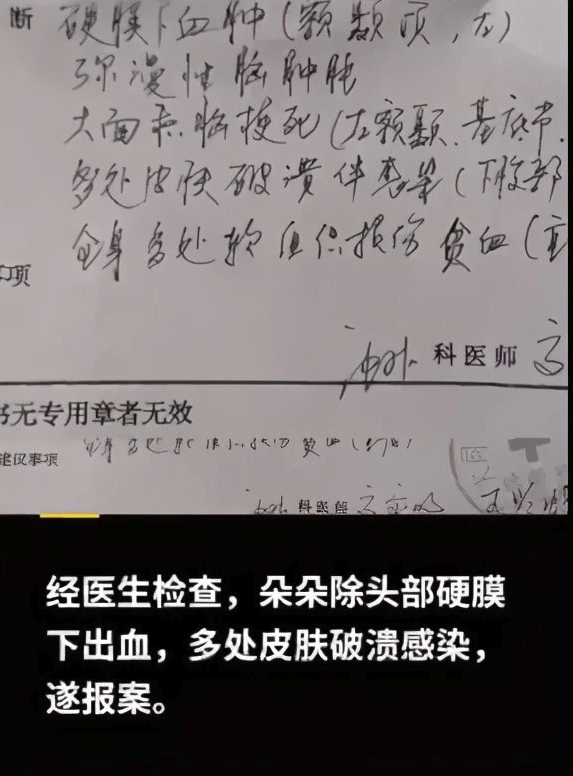 断 硬膜下血肿(额颞顶,左)
弥漫性脑肿胀
大面积脑梗死(左额颞.基底节.
多处皮肤破溃伴感染(下腹部
全身多处软组织损伤 贫血(
项
科医师
书无专用章者无效
建议事项
科医师
经医生检查，朵朵除头部硬膜
下出血，多处皮肤破溃感染，
遂报案。